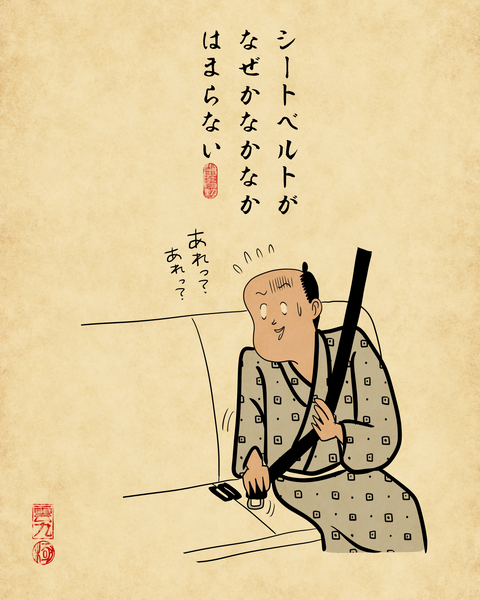 シートベルトが
なぜかなかなか
はまらない
あれって?
あれって?